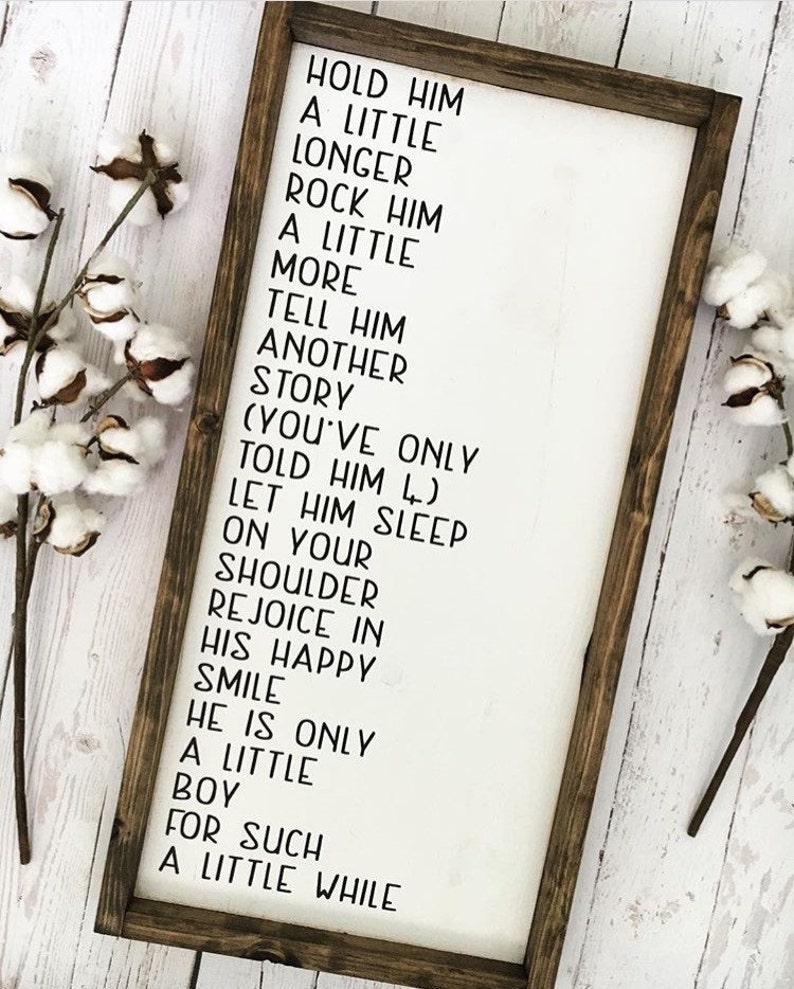 HOLD HIM
A LITTLE
LONGER
ROCK HIM
A LITTLE
MORE
TELL HIM
ANOTHER
STORY
(YOU'VE ONLY
TOLD HIM 4)
LET HIM SLEEP
ON YOUR
SHOULDER
REJOICE IN
HIS HAPPY
SMILE
HE IS ONLY
A LITTLE
BOY
FOR SUCH
A LITTLE WHILE